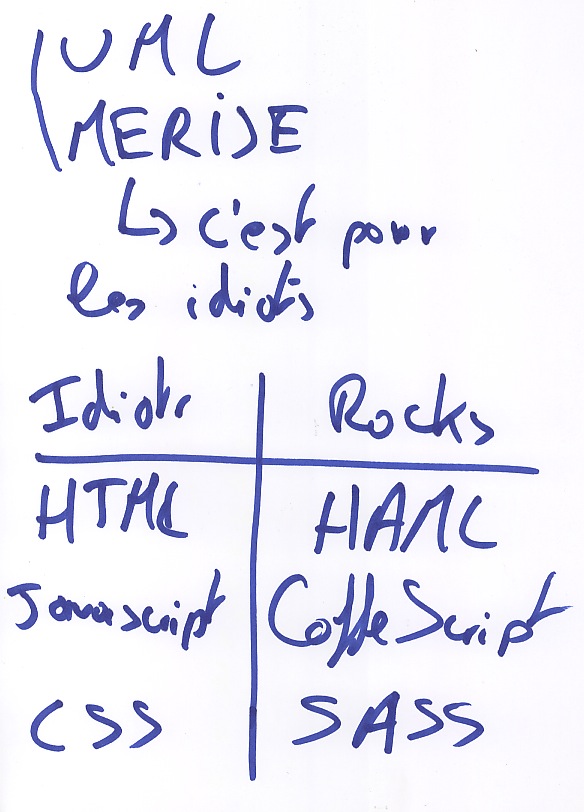 UML
MERISE
↳ c'est pour
les idiots
Idiots Rocks
HTML HAML
Javascript CoffeScript
CSS SASS